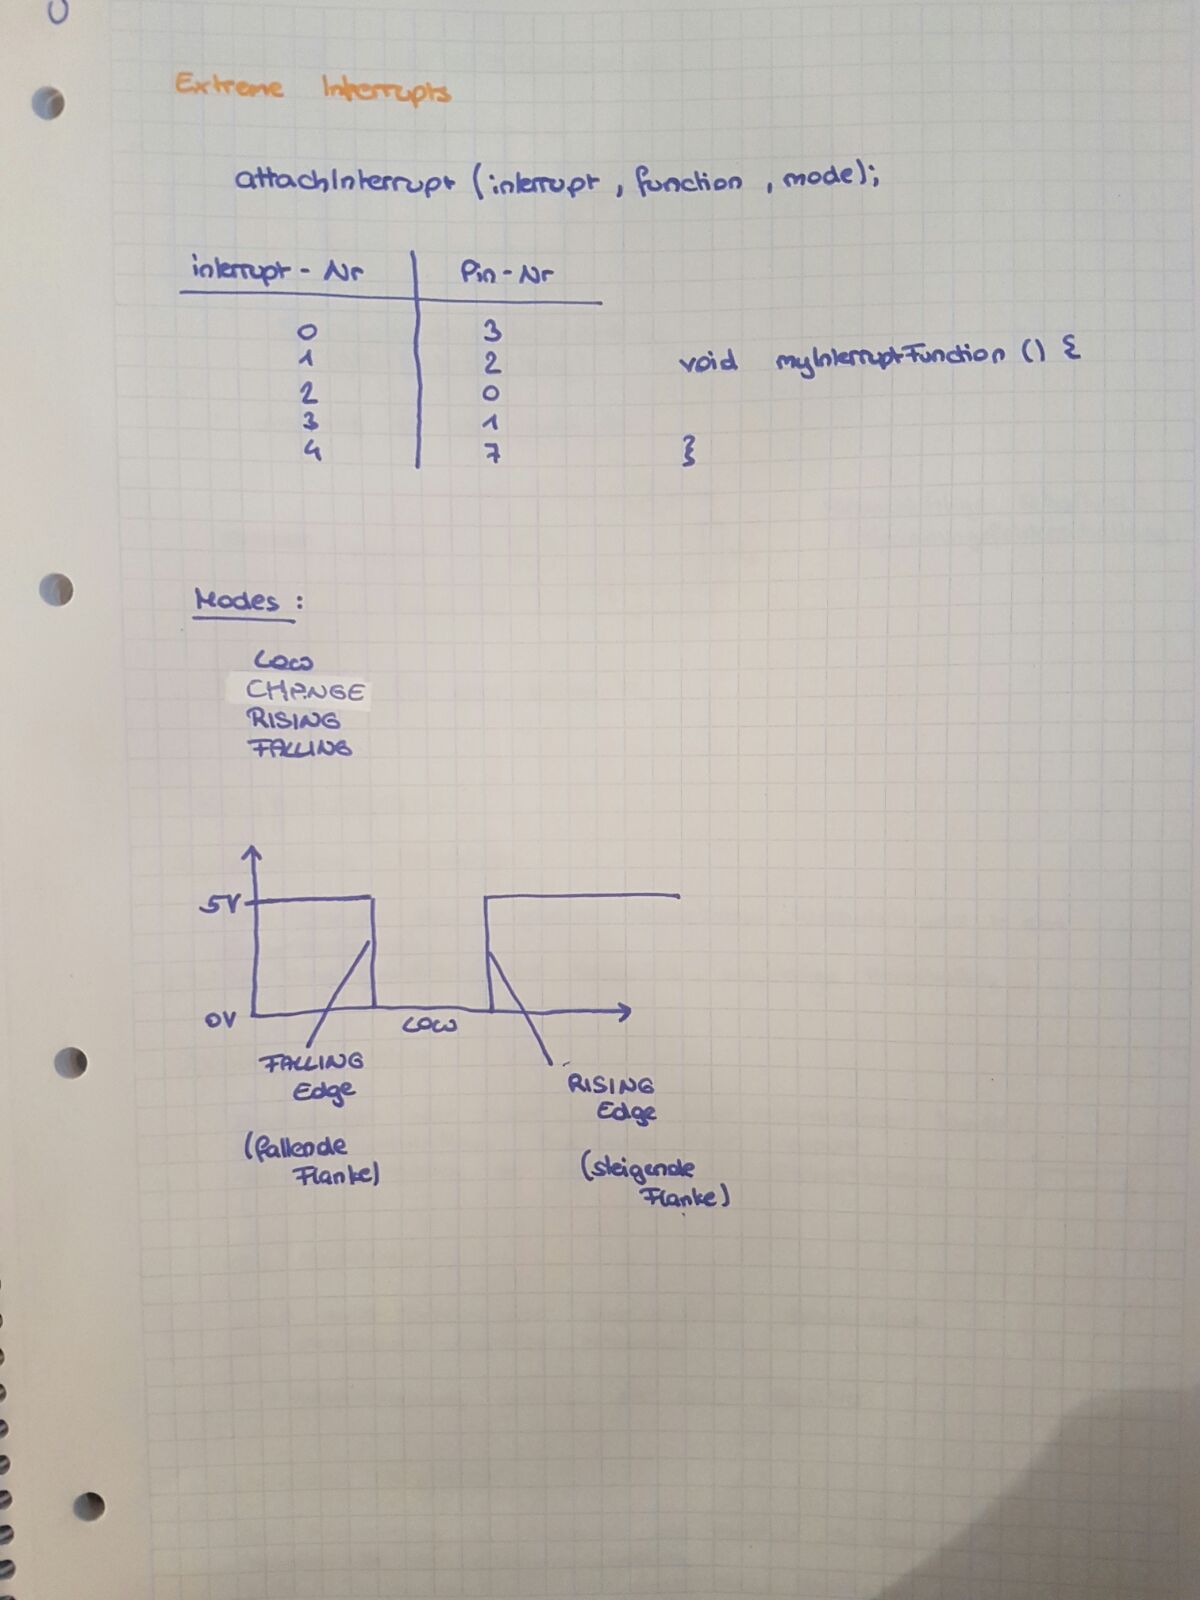 Extreme Interrupts
attachInterrupt (interrupt, function, mode);
interrupt - Nr Pin - Nr
0 3
1 2
void myInterruptFunction () {
2 0
3 1
4 7
}
Modes :
LOW
CHANGE
RISING
FALLING
5V
0V
LOW
FALLING
Edge
(fallende
Flanke)
RISING
Edge
(steigende
Flanke)